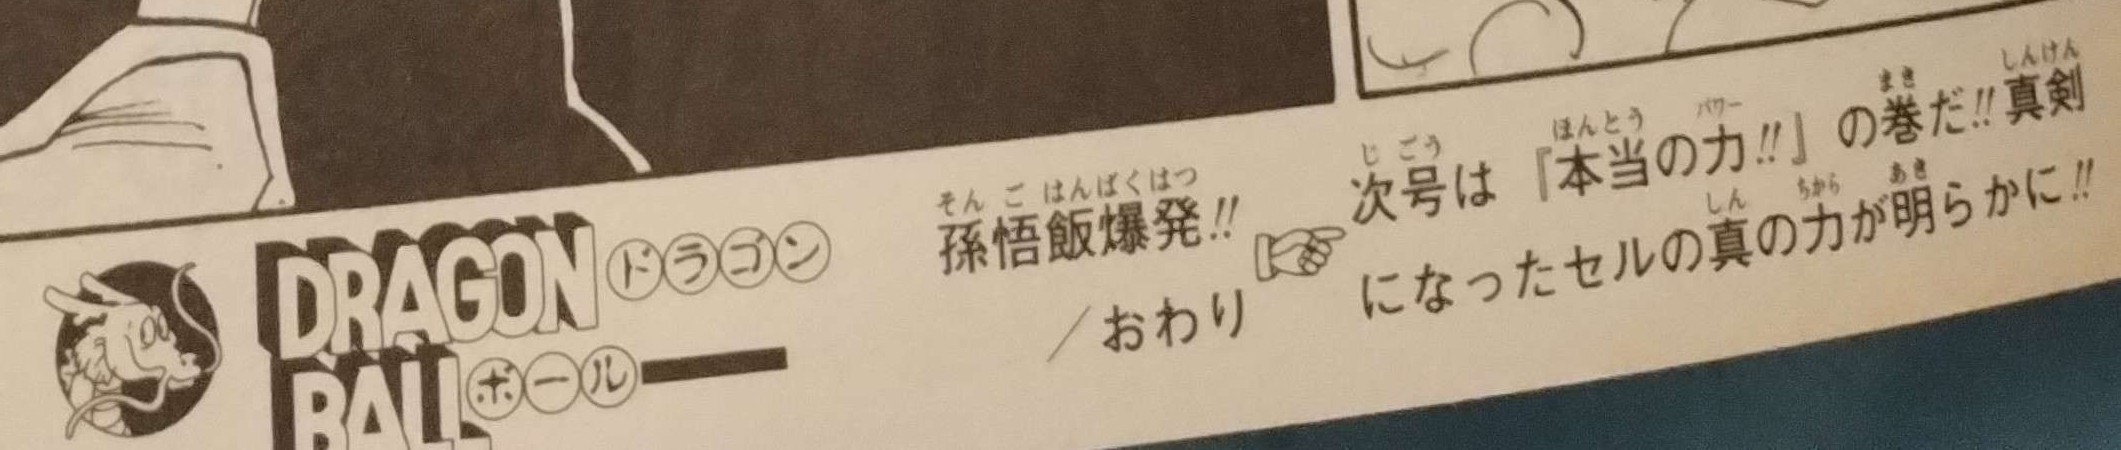 DRAGON ドラゴン
BALL ボール
孫悟飯爆発!!
/おわり
次号は『本当の力!!』の巻だ!!真剣
になったセルの真の力が明らかに!!